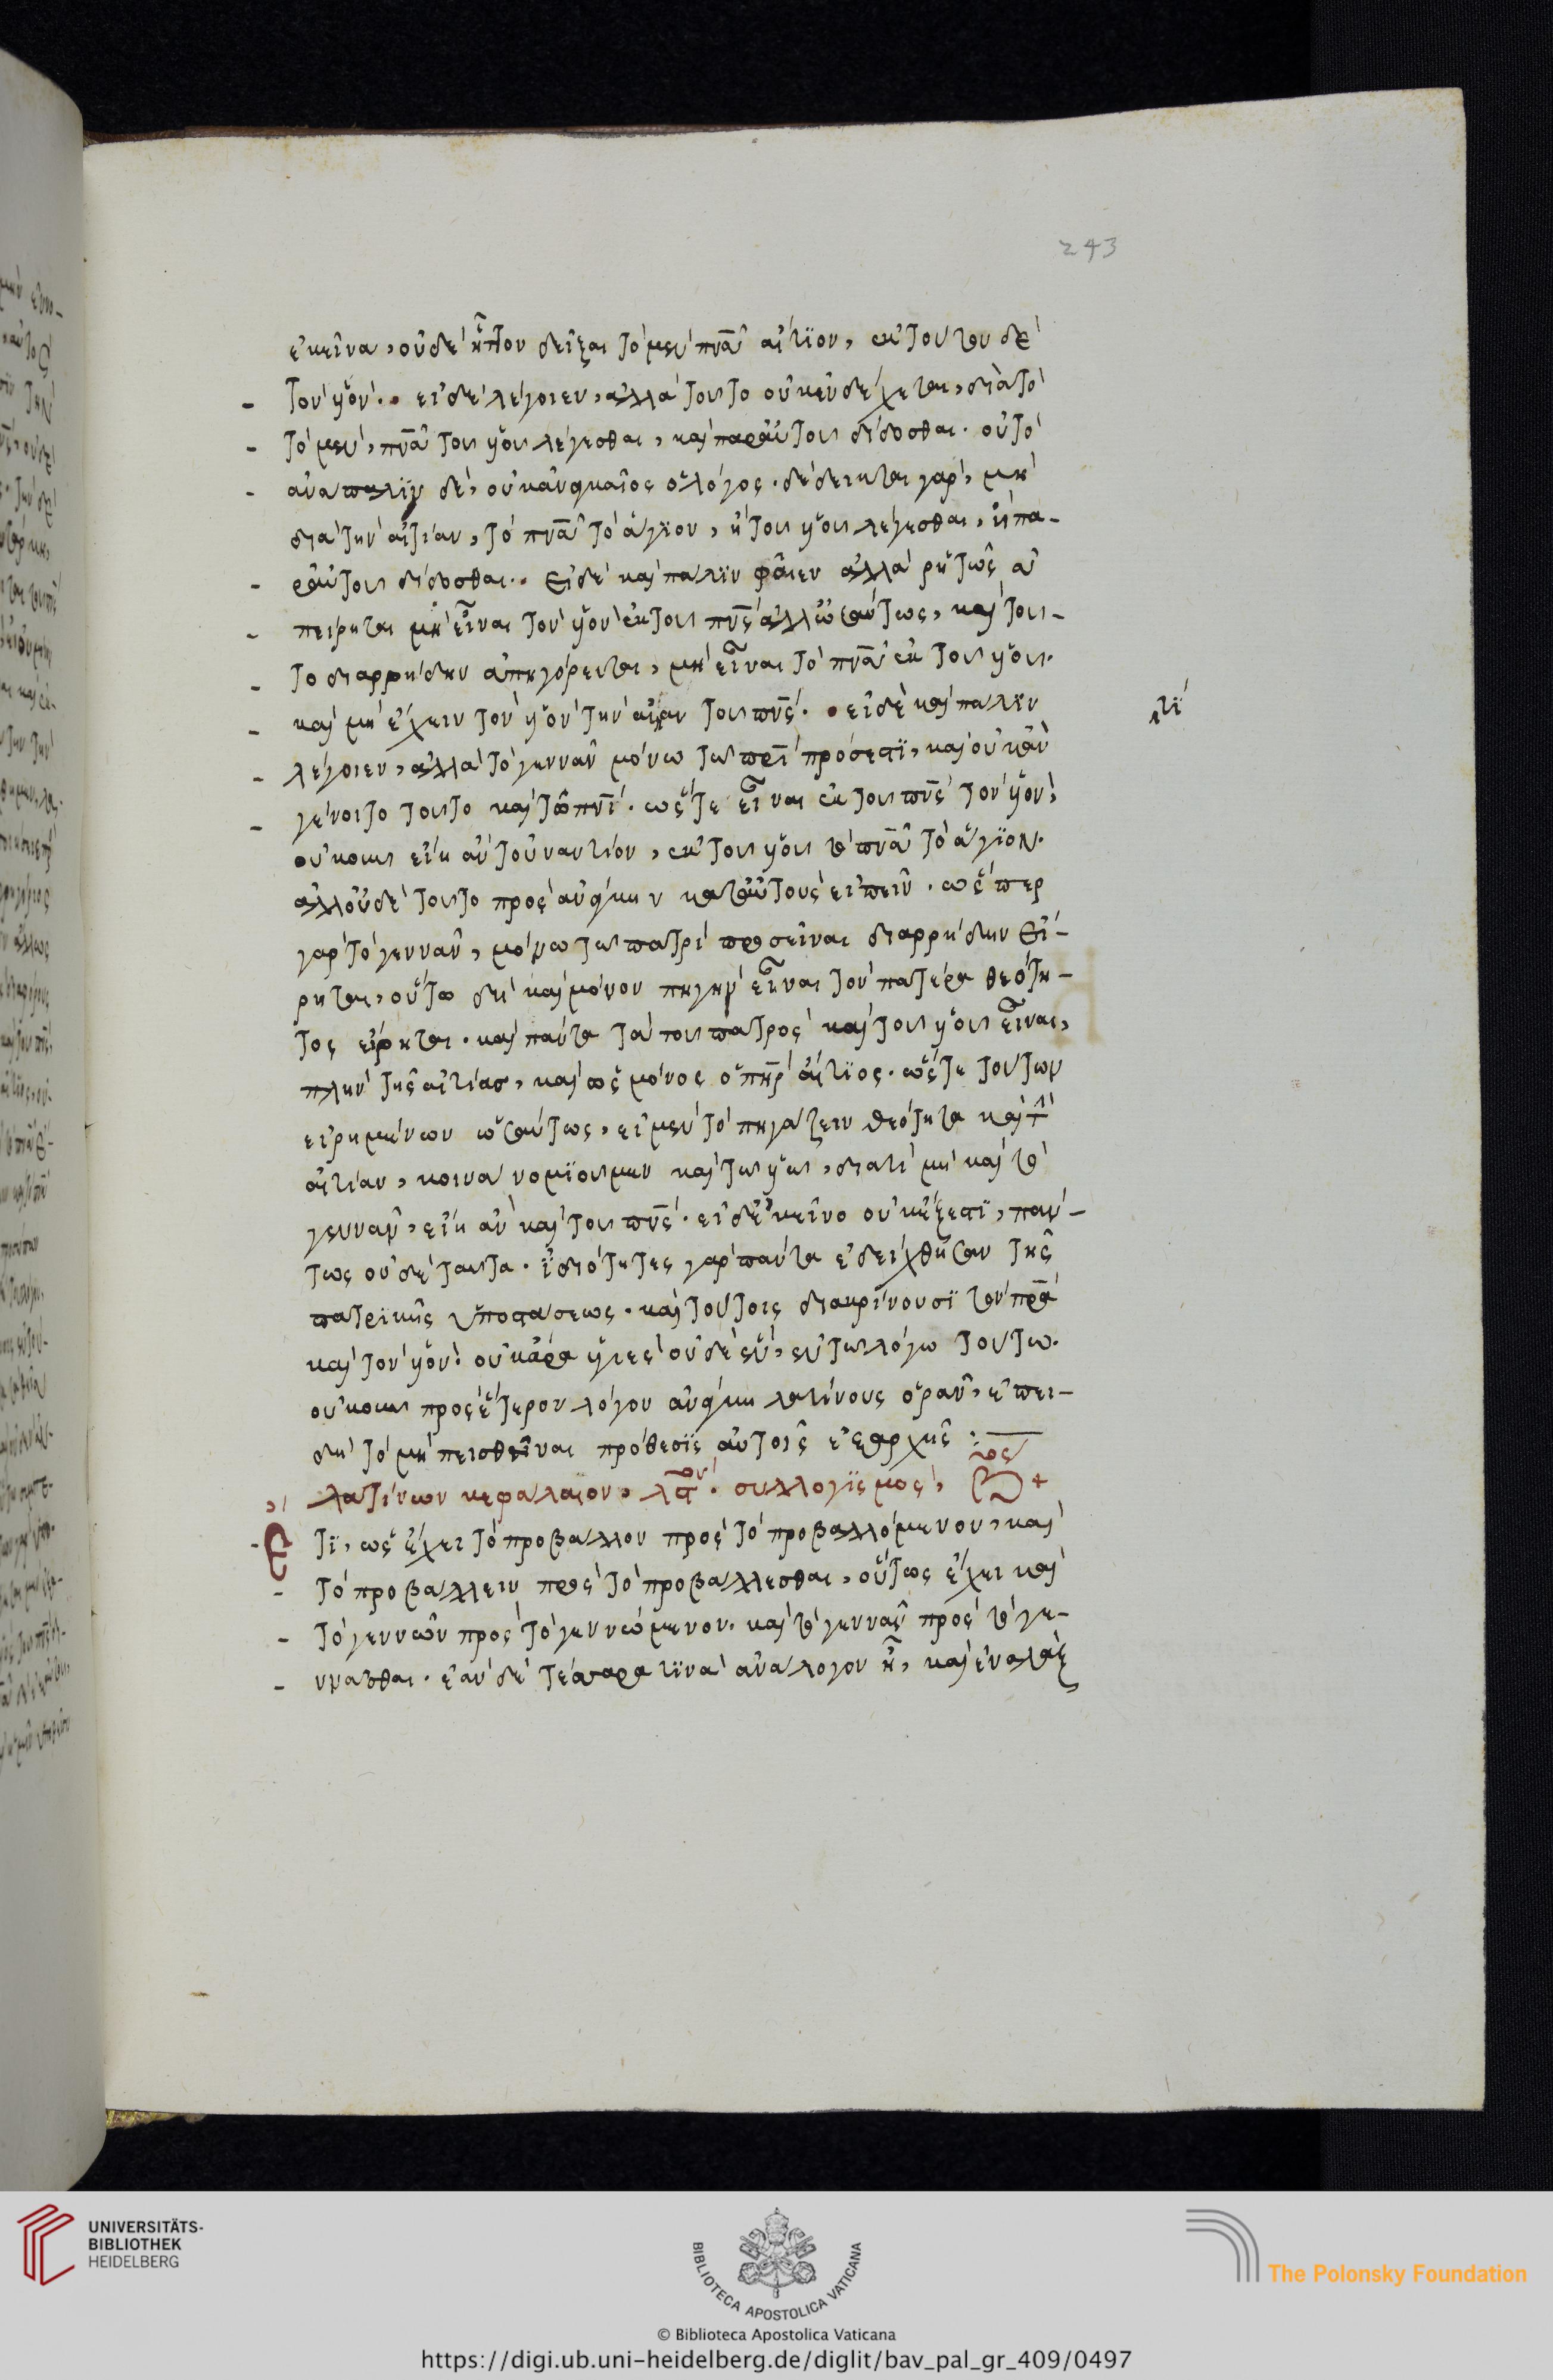 243
ἐκεῖνα, οὐδὲ ἧττον δεῖξαι τὸ μὲν πνᾶ αἴτϊον, ἐκ τούτου δὲ
τὸν υἱόν. εἰ δὲ λέγοιεν, ἀλλὰ τοῦτο οὐκ ἐνδέχεται, διὰ τὸ
τὸ μὲν, πνᾶ τοῦ υἱοῦ λέγεσθαι, καὶ παρ' αὐτοῦ δίδοσθαι. οὐ τὸ
ἀνάπαλϊν δὲ, οὐκ ἀναγκαῖος ὁ λόγος. δέδεικται γὰρ, μὴ
διὰ τὴν αἰτίαν, τὸ πνᾶ τὸ ἅγϊον, ἢ τοῦ υἱοῦ λέγεσθαι, ἢ πα-
ρ' αὐτοῦ δίδοσθαι. εἰ δὲ καὶ πάλϊν φαῖεν ἀλλὰ ῥητῶς ἀ
πείρηται μὴ εἶναι τὸν υἱὸν ἐκ τοῦ πνς ἀλλ' ὡσαύτως, καὶ τοῦ-
το διαρρήδην ἀπηγόρευται, μὴ εἶναι τὸ πνᾶ ἐκ τοῦ υἱοῦ.
καὶ μὴ ἔχειν τὸν υἱὸν τὴν αἰτίαν τοῦ πνς. εἰ δὲ καὶ πάλϊν
τϊ
λέγοιεν, ἀλλὰ τὸ γεννᾶν μόνω τῶ πρϊ πρόσεστϊ, καὶ οὐκ ἂν
γένοιτο τοῦτο καὶ τῶ πνϊ. ὥστε εἶναι ἐκ τοῦ πνς τὸν υἱὸν,
οὔκουν εἴη ἂν τοὐναντίον, ἐκ τοῦ υἱοῦ τὸ πνᾶ τὸ ἅγϊον.
ἀλλ' οὐδὲ τοῦτο πρὸς ἀνάγκην κατ' αὐτοὺς εἰπεῖν. ὥσπερ
γὰρ τὸ γεννᾶν, μόνω τῶ πατρὶ προσεῖναι διαρρήδην εἴ-
ρηται, οὕτω δὴ καὶ μόνον πηγὴν εἶναι τὸν πατέρα θεότη-
τος εἴρηται. καὶ πάντα τὰ τοῦ πατρὸς καὶ τοῦ υἱοῦ εἶναι,
πλὴν τῆς αἰτίας, καὶ ὡς μόνος ὁ πηρ αἴτϊος. ὥστε τούτων
εἰρημένων ὡσαύτως, εἰ μὲν τὸ πηγάζειν θεότητα καὶ τ
αἰτίαν, κοινὰ νομϊοῦμεν καὶ τῶ υἱῶ, διατί μὴ καὶ τὸ
γεννᾶν, εἴη ἂν καὶ τοῦ πνς. εἰ δ' ἐκεῖνο οὐκ ἔξεστϊ, πάν-
τως οὐδὲ ταῦτα. ἰδιότητες γὰρ πάντα ἐδείχθησαν τῆς
πατρϊκῆς ὑποστάσεως. καὶ τούτοις διακρίνουσϊ τὸν πρα
καὶ τὸν υἱόν. οὐκ ἄρα ὑγιὲς οὐδὲ ἓν, ἐν τῶ λόγω τούτω.
οὔκουν πρὸς ἕτερον λόγον ἀνάγκη λατίνους ὁρᾶν, ἐπει-
δὴ τὸ μὴ πεισθῆναι πρόθεσϊς αὐτοῖς ἐξαρχῆς :
λατίνων κεφάλαιον, λαον. συλλογϊσμὸς, βος +
Ὅτϊ, ὡς ἔχει τὸ προβάλλον πρὸς τὸ προβαλλόμενον, καὶ
τὸ προβάλλειν πρὸς τὸ προβάλλεσθαι, οὕτως ἔχει καὶ
τὸ γεννῶν πρὸς τὸ γεννώμενον. καὶ τὸ γεννᾶν πρὸς τὸ γε-
ννᾶσθαι. ἐὰν δὲ τέσσαρα τϊνὰ ἀνάλογον ἦ, καὶ ἐναλλὰξ
UNIVERSITÄTS-
BIBLIOTHEK
HEIDELBERG
BIBLIOTECA APOSTOLICA VATICANA
The Polonsky Foundation
© Biblioteca Apostolica Vaticana
https://digi.ub.uni-heidelberg.de/diglit/bav_pal_gr_409/0497